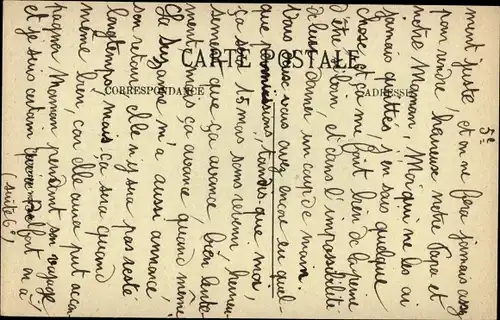 5e
ment juste, et on ne fera jamais assez
pour rendre heureux notre Papa et
notre Maman, Moi qui ne les ai
jamais quittés, j'en sais quelque
chose et ça me fait bien de la peine
d'être si loin, et dans l'impossibilité
de leur donner un coup de main.
Vous aussi vous avez encore eu quel-
que permissions, tandis que moi,
ça sera 15 mois sans revenir, heureu-
sement que ça avance, bien lente-
ment mais ça avance quand même
Suzanne m'a aussi annoncé,
son retour, elle n'y sera pas resté
longtemps mais ça sera quand
même bien, car elle aura put accom-
pagner Maman pendant son voyage
et je suis certain fort on a
(suite 6°)
CARTE POSTALE
CORRESPONDANCE
ADRESSE